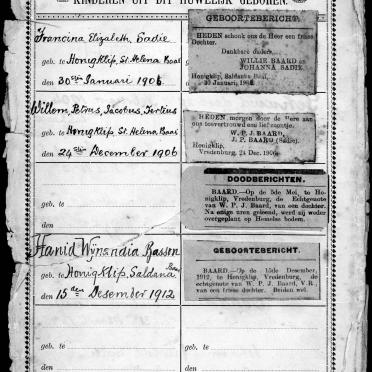 KINDEREN UIT DIT HUWELIJK GEBOREN.
Francina Elizabeth Sadie
geb. te Honigklip, St. Helena Baai
den 30ste Januari 1906
GEBOORTEBERICHT.
HEDEN schonk ons de Heer een frisse
Dochter.
Dankbare ouders,
WILLIE BAARD en
JOHANNA SADIE.
Honigklip, Saldanha Baai,
30 Januari, 1906.
Willem, Petrus, Jacobus, Tertius
geb. te Honigklip, St. Helena, Baai
den 24ste December 1906
HEDEN morgen door de Heere aan
ons toevertrouwd een lief zoontje.
W. P. J. BAARD,
J. P. BAARD (Sadie).
Honigklip,
Vredenburg, 24 Dec. 1906.
geb. te
den
DOODBERICHTEN.
BAARD.—Op de 5de Mei, te Ho-
nigklip, Vredenburg, de Echtgenote
van W. P. J. Baard, van een dochter.
Na enige uren geleend, werd zij weder
overgeplant op Hemelse bodem.
Hanid Wynandia Rassen
geb. te Honigklip, Saldana Baai
den 15den Desember 1912
GEBOORTEBERICHT.
BAARD.—Op de 15de Desember,
1912, te Honigklip, Vredenburg, de
echtgenote van W. P. J. Baard, V.R.,
van een frisse dochter. Beiden wel.
geb. te
den
geb. te
den
geb. te
geb. te